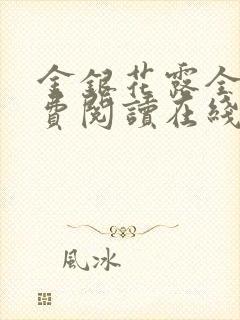 金銀花露全
費閱讀在綫
風冰